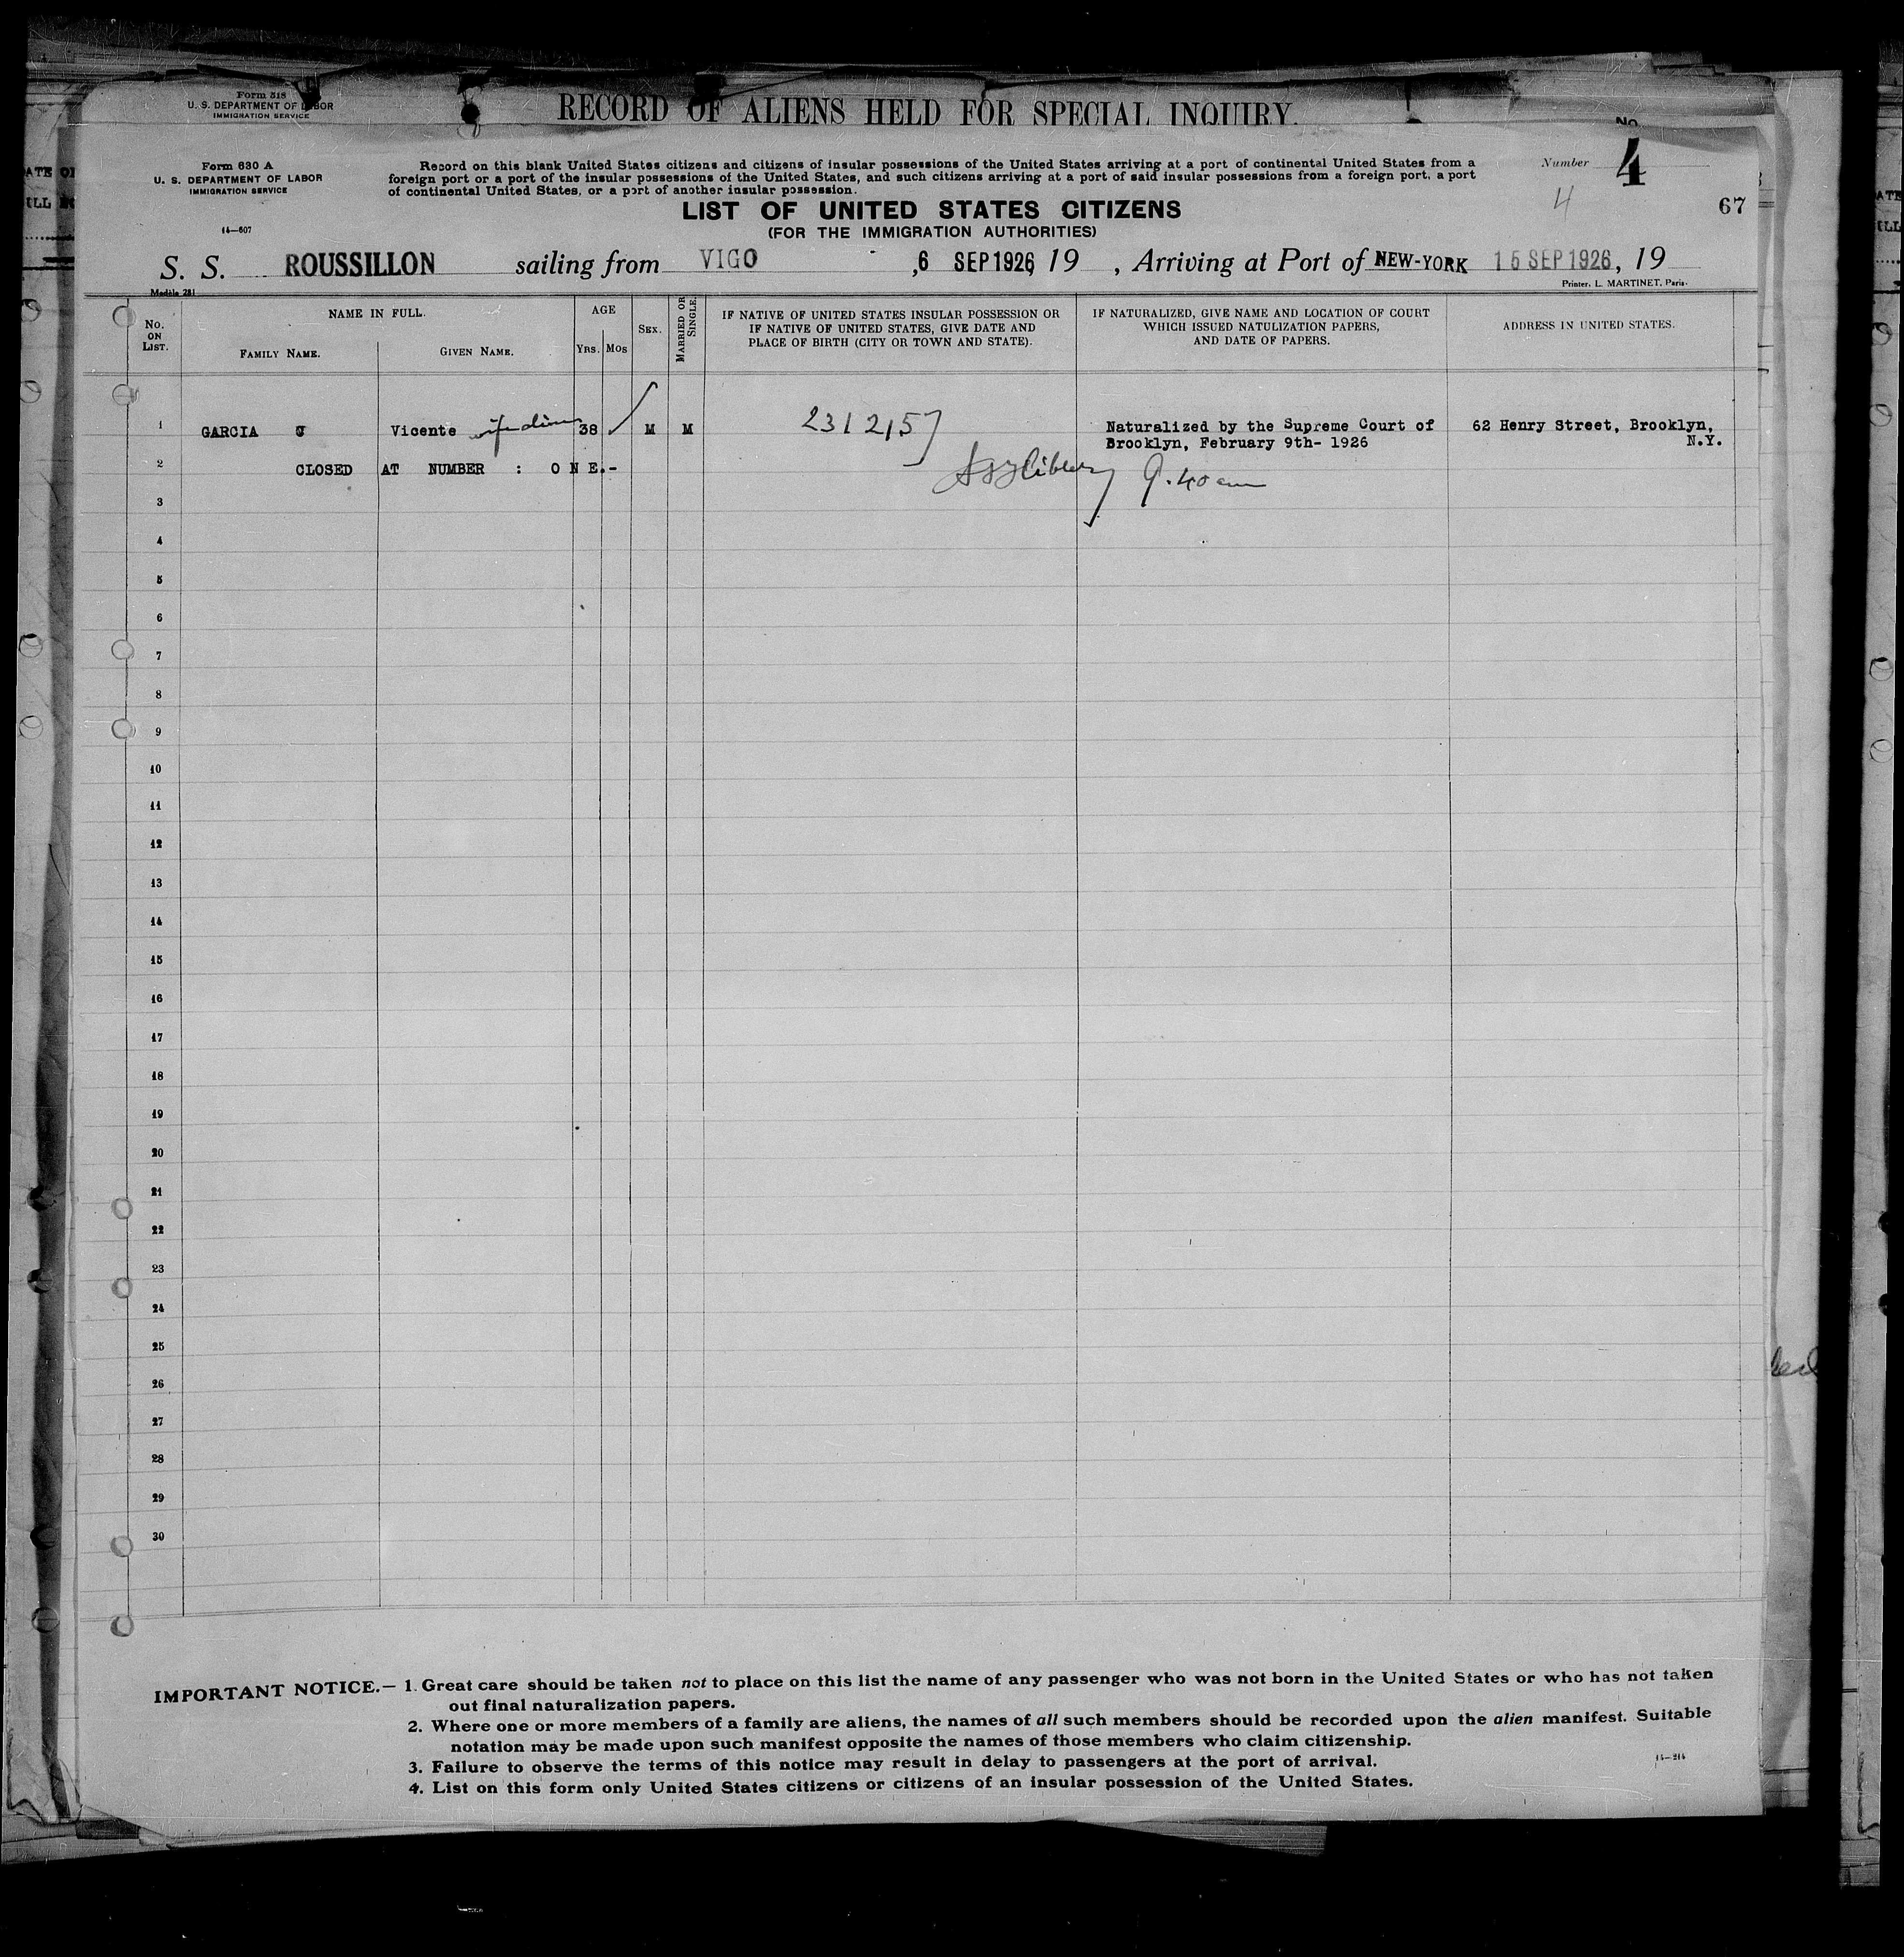 Form 518
U. S. DEPARTMENT OF LABOR
IMMIGRATION SERVICE
RECORD OF ALIENS HELD FOR SPECIAL INQUIRY.
No.
Form 630 A
U. S. DEPARTMENT OF LABOR
IMMIGRATION SERVICE
14—607
Record on this blank United States citizens and citizens of insular possessions of the United States arriving at a port of continental United States from a
foreign port or a port of the insular possessions of the United States, and such citizens arriving at a port of said insular possessions from a foreign port, a port
of continental United States, or a port of another insular possession.
Number 4
4
67
LIST OF UNITED STATES CITIZENS
(FOR THE IMMIGRATION AUTHORITIES)
S. S. ROUSSILLON sailing from VIGO , 6 SEP 1926, 19 , Arriving at Port of NEW-YORK 15 SEP 1926, 19
Modèle 281
Printer, L. MARTINET, Paris.
No. ON LIST.
NAME IN FULL.
FAMILY NAME.
GIVEN NAME.
AGE
Yrs. Mos
SEX.
MARRIED OR SINGLE.
IF NATIVE OF UNITED STATES INSULAR POSSESSION OR
IF NATIVE OF UNITED STATES, GIVE DATE AND
PLACE OF BIRTH (CITY OR TOWN AND STATE).
IF NATURALIZED, GIVE NAME AND LOCATION OF COURT
WHICH ISSUED NATULIZATION PAPERS,
AND DATE OF PAPERS.
ADDRESS IN UNITED STATES.
1 GARCIA Vicente 38 M M 2312157 Naturalized by the Supreme Court of 62 Henry Street, Brooklyn,
Brooklyn, February 9th- 1926 N.Y.
2 CLOSED AT NUMBER : O N E.-
9.40 am
3
4
5
6
7
8
9
10
11
12
13
14
15
16
17
18
19
20
21
22
23
24
25
26
27
28
29
30
IMPORTANT NOTICE.— 1. Great care should be taken not to place on this list the name of any passenger who was not born in the United States or who has not taken
out final naturalization papers.
2. Where one or more members of a family are aliens, the names of all such members should be recorded upon the alien manifest. Suitable
notation may be made upon such manifest opposite the names of those members who claim citizenship.
3. Failure to observe the terms of this notice may result in delay to passengers at the port of arrival.
14—214
4. List on this form only United States citizens or citizens of an insular possession of the United States.